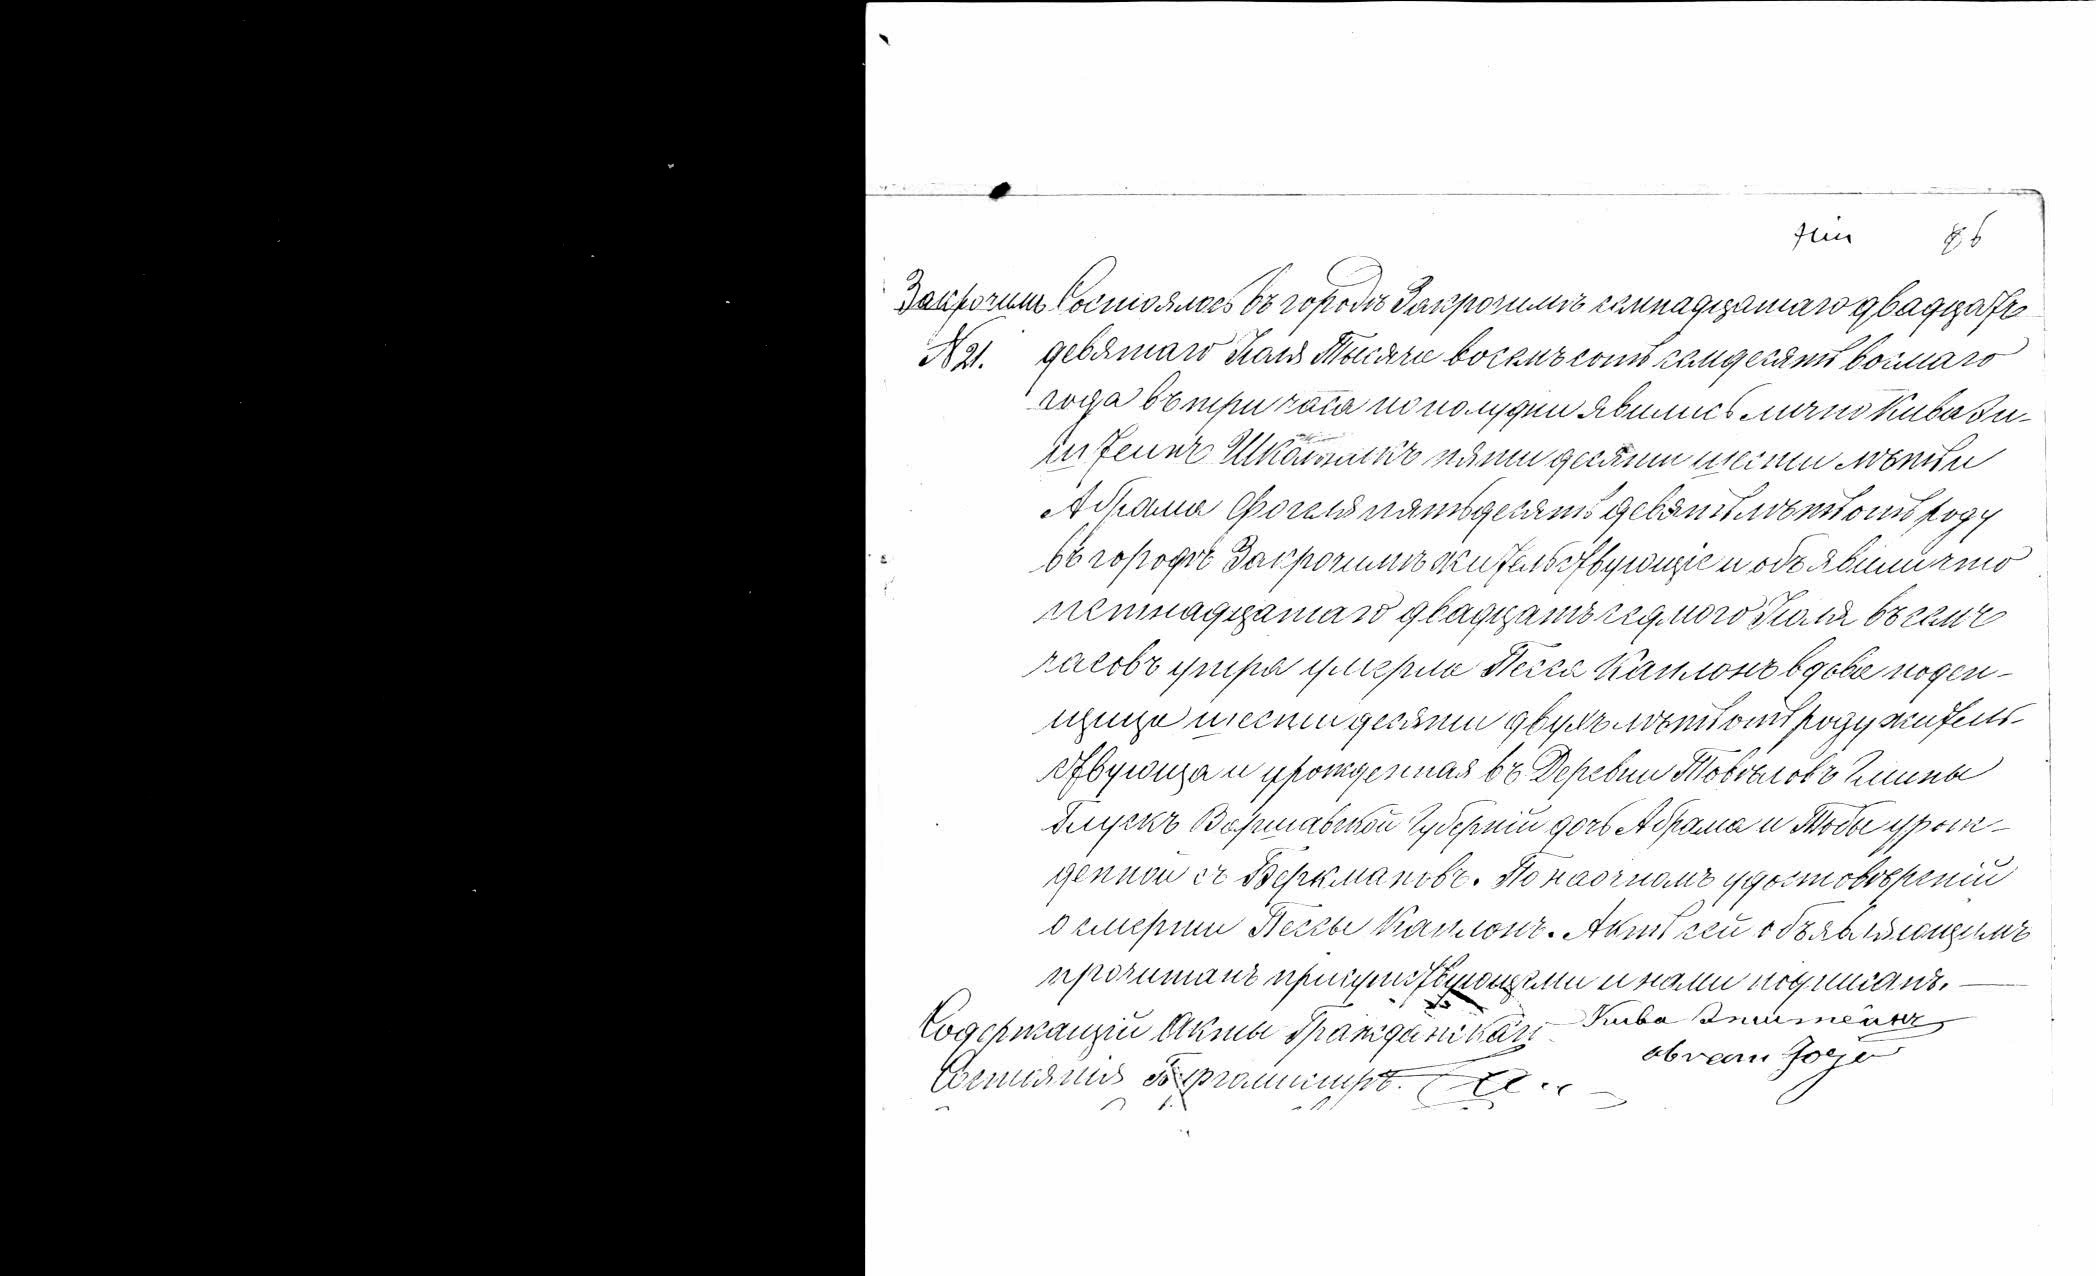 86
Закрочим Состоялось въ городѣ Закрочимѣ семнадцатаго двадцать
N 21. девятаго Iюля Тысяча восемъсотъ семдесятъ восмаго
года въ три часа по полудни явились лично Кива Зни-
штенъ Школьникъ пяти десяти шести лѣтъ и
Абрама Фогель пятьдесятъ девятъ лѣтъ отъ роду
въ городѣ Закрочимѣ жительствующiе и объявили что
петнадцатаго двадцать седмого Iюля въ семъ
часовъ утра умерла Песса Каплонъ вдова поден-
щица шести десяти двухъ лѣтъ отъ роду житель-
ствующа и урожденная въ Деревни Гмины
Глускъ Варшавской Губернiи дочь Абрама и Тобы урож-
денной съ Беркмановъ. По наочномъ удостовѣренiи
о смерти Пессы Каплонъ. Актъ сей объявляющимъ
прочитанъ присутствующими и нами подписанъ.
Содержащiй Акты Гражданскаго Кива
Состоянiя Бургомистръ. abram